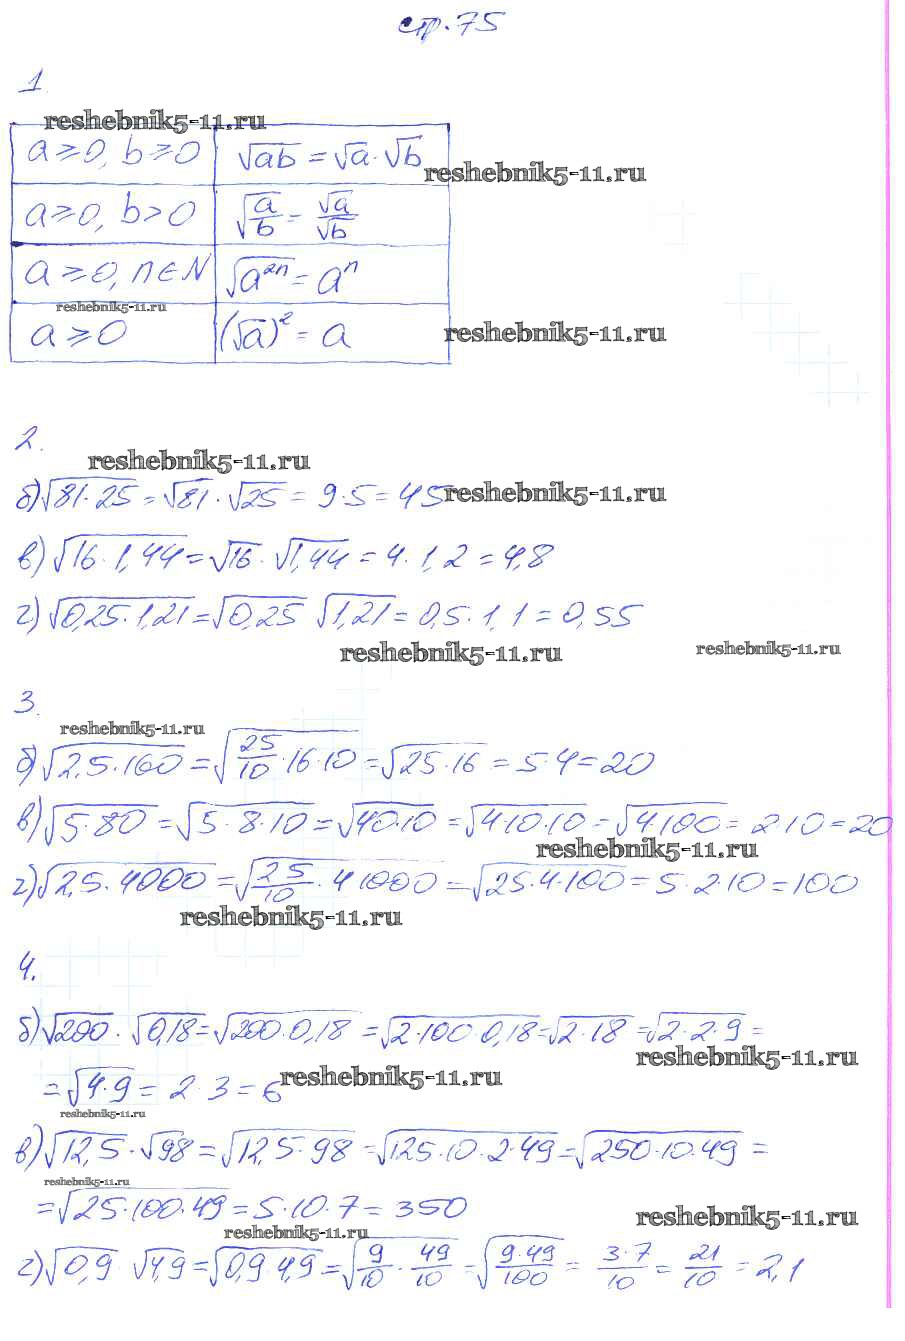 стр. 75
1
reshebnik5-11.ru
a ≥ 0, b ≥ 0 √(ab) = √a · √b
reshebnik5-11.ru
a ≥ 0, b > 0 √(a/b) = √a/√b
a ≥ 0, n ∈ N √(a²ⁿ) = aⁿ
reshebnik5-11.ru
a ≥ 0 (√a)² = a
reshebnik5-11.ru
2.
reshebnik5-11.ru
б) √(81·25) = √81 · √25 = 9·5 = 45
reshebnik5-11.ru
в) √(16·1,44) = √16 · √1,44 = 4·1,2 = 4,8
г) √(0,25·1,21) = √0,25 √1,21 = 0,5·1,1 = 0,55
reshebnik5-11.ru
reshebnik5-11.ru
3.
reshebnik5-11.ru
б) √(2,5·160) = √(25/10·16·10) = √(25·16) = 5·4 = 20
в) √(5·80) = √(5·8·10) = √(40·10) = √(4·10·10) = √(4·100) = 2·10 = 20
reshebnik5-11.ru
г) √(2,5·4000) = √(25/10·4 1000) = √(25·4·100) = 5·2·10 = 100
reshebnik5-11.ru
4.
б) √200 · √0,18 = √(200·0,18) = √(2·100·0,18) = √(2·18) = √(2·2·9) =
reshebnik5-11.ru
= √(4·9) = 2·3 = 6
reshebnik5-11.ru
reshebnik5-11.ru
в) √12,5 · √98 = √(12,5·98) = √(125·10·2·49) = √(250·10·49) =
reshebnik5-11.ru
= √(25·100·49) = 5·10·7 = 350
reshebnik5-11.ru
reshebnik5-11.ru
г) √0,9 · √4,9 = √(0,9·4,9) = √(9/10·49/10) = √(9·49/100) = 3·7/10 = 21/10 = 2,1